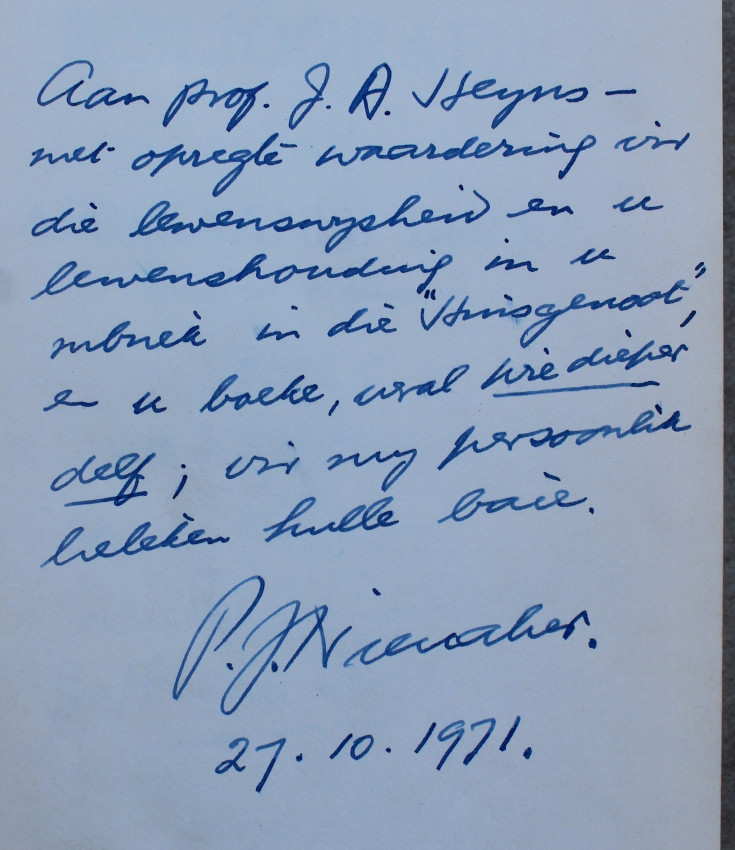 Aan prof. J. A. Heyns –
met opregte waardering vir
die lewenswysheid en u
lewenshouding in u
rubriek in die "Huisgenoot",
en u boeke, veral wie dieper
delf; vir my persoonlik
beteken hulle baie.
P. J. Nienaber.
27.10.1971.